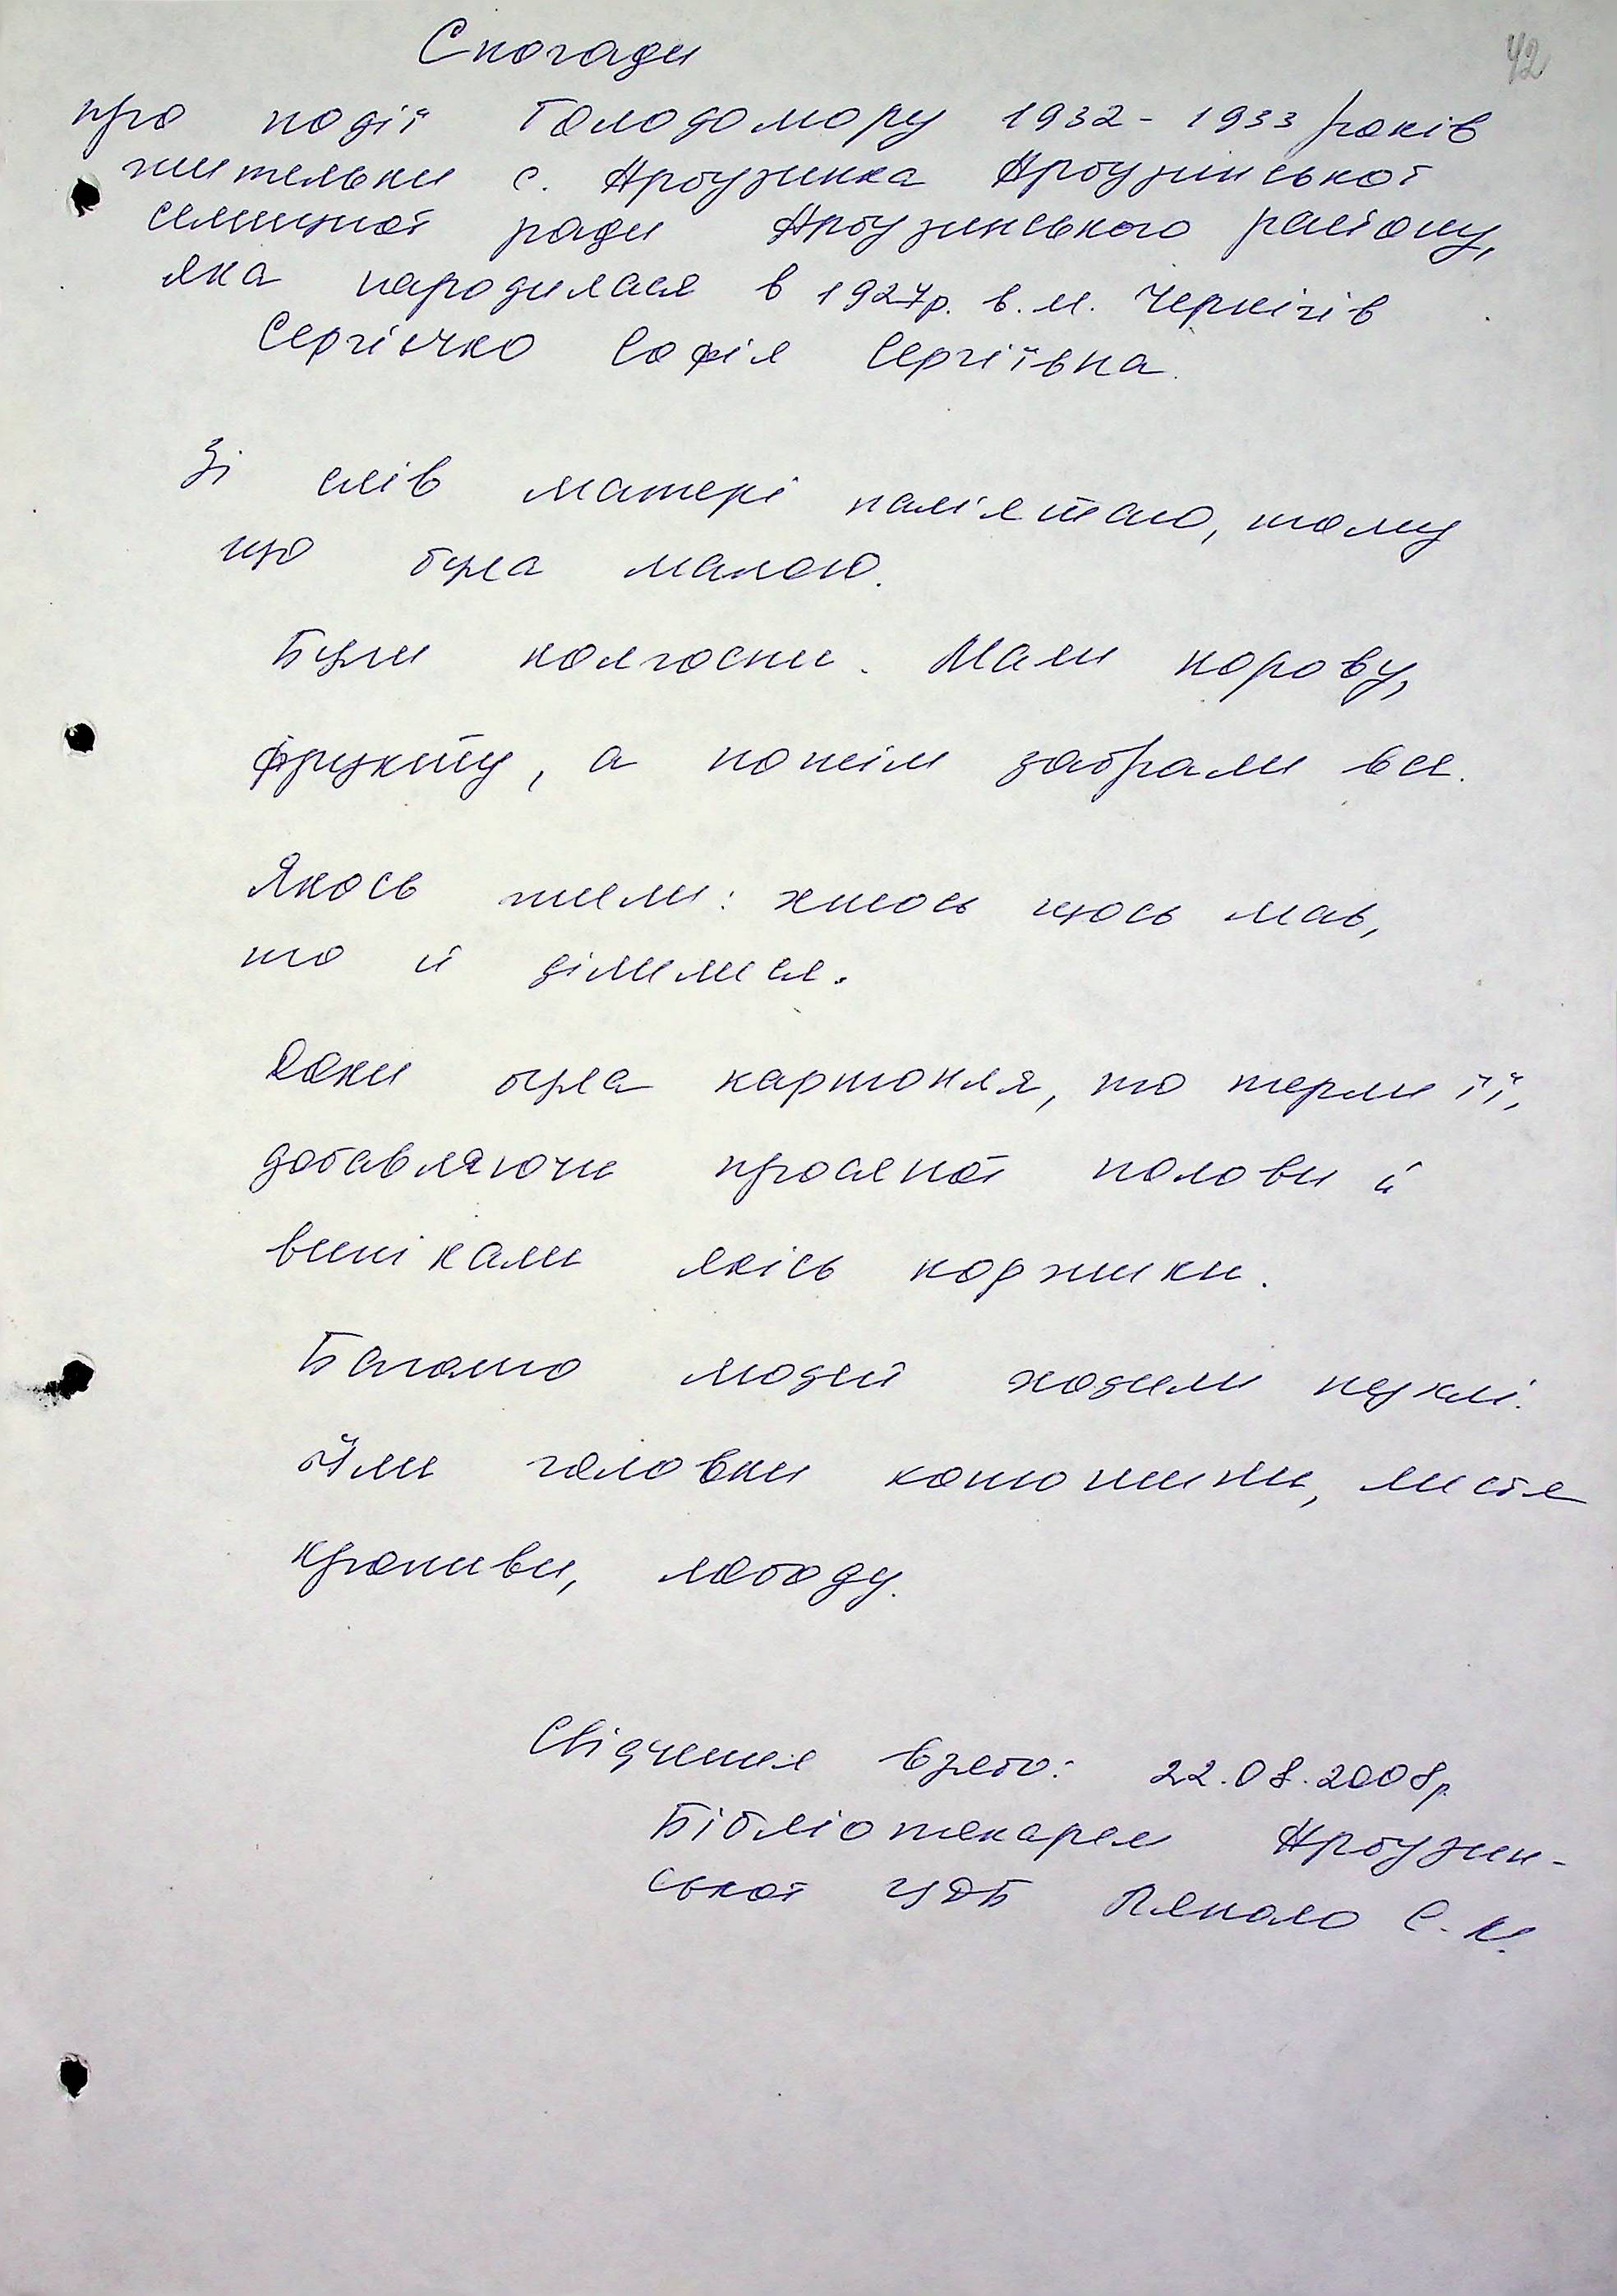 42
Спогади
про події Голодомору 1932-1933 років
жительки с. Арбузинка Арбузинської
селищної ради Арбузинського району,
яка народилася в 1927р. в м. Чернігів
Софія Сергіївна.
Зі слів матері пам'ятаю, тому
що була малою.
Були колгоспи. Мали корову,
фрукти, а потім забрали все.
Якось жили: хтось щось мав,
то й ділилися.
Доки була картопля, то терли її,
добавляючи просяної полови й
випікали якісь коржики.
Багато людей ходили пухлі.
Їли головки конюшини, листя
кропиви, лободу.
Свідчення взято: 22.08.2008р.
Бібліотекарем Арбузин-
ської ЦДБ С.